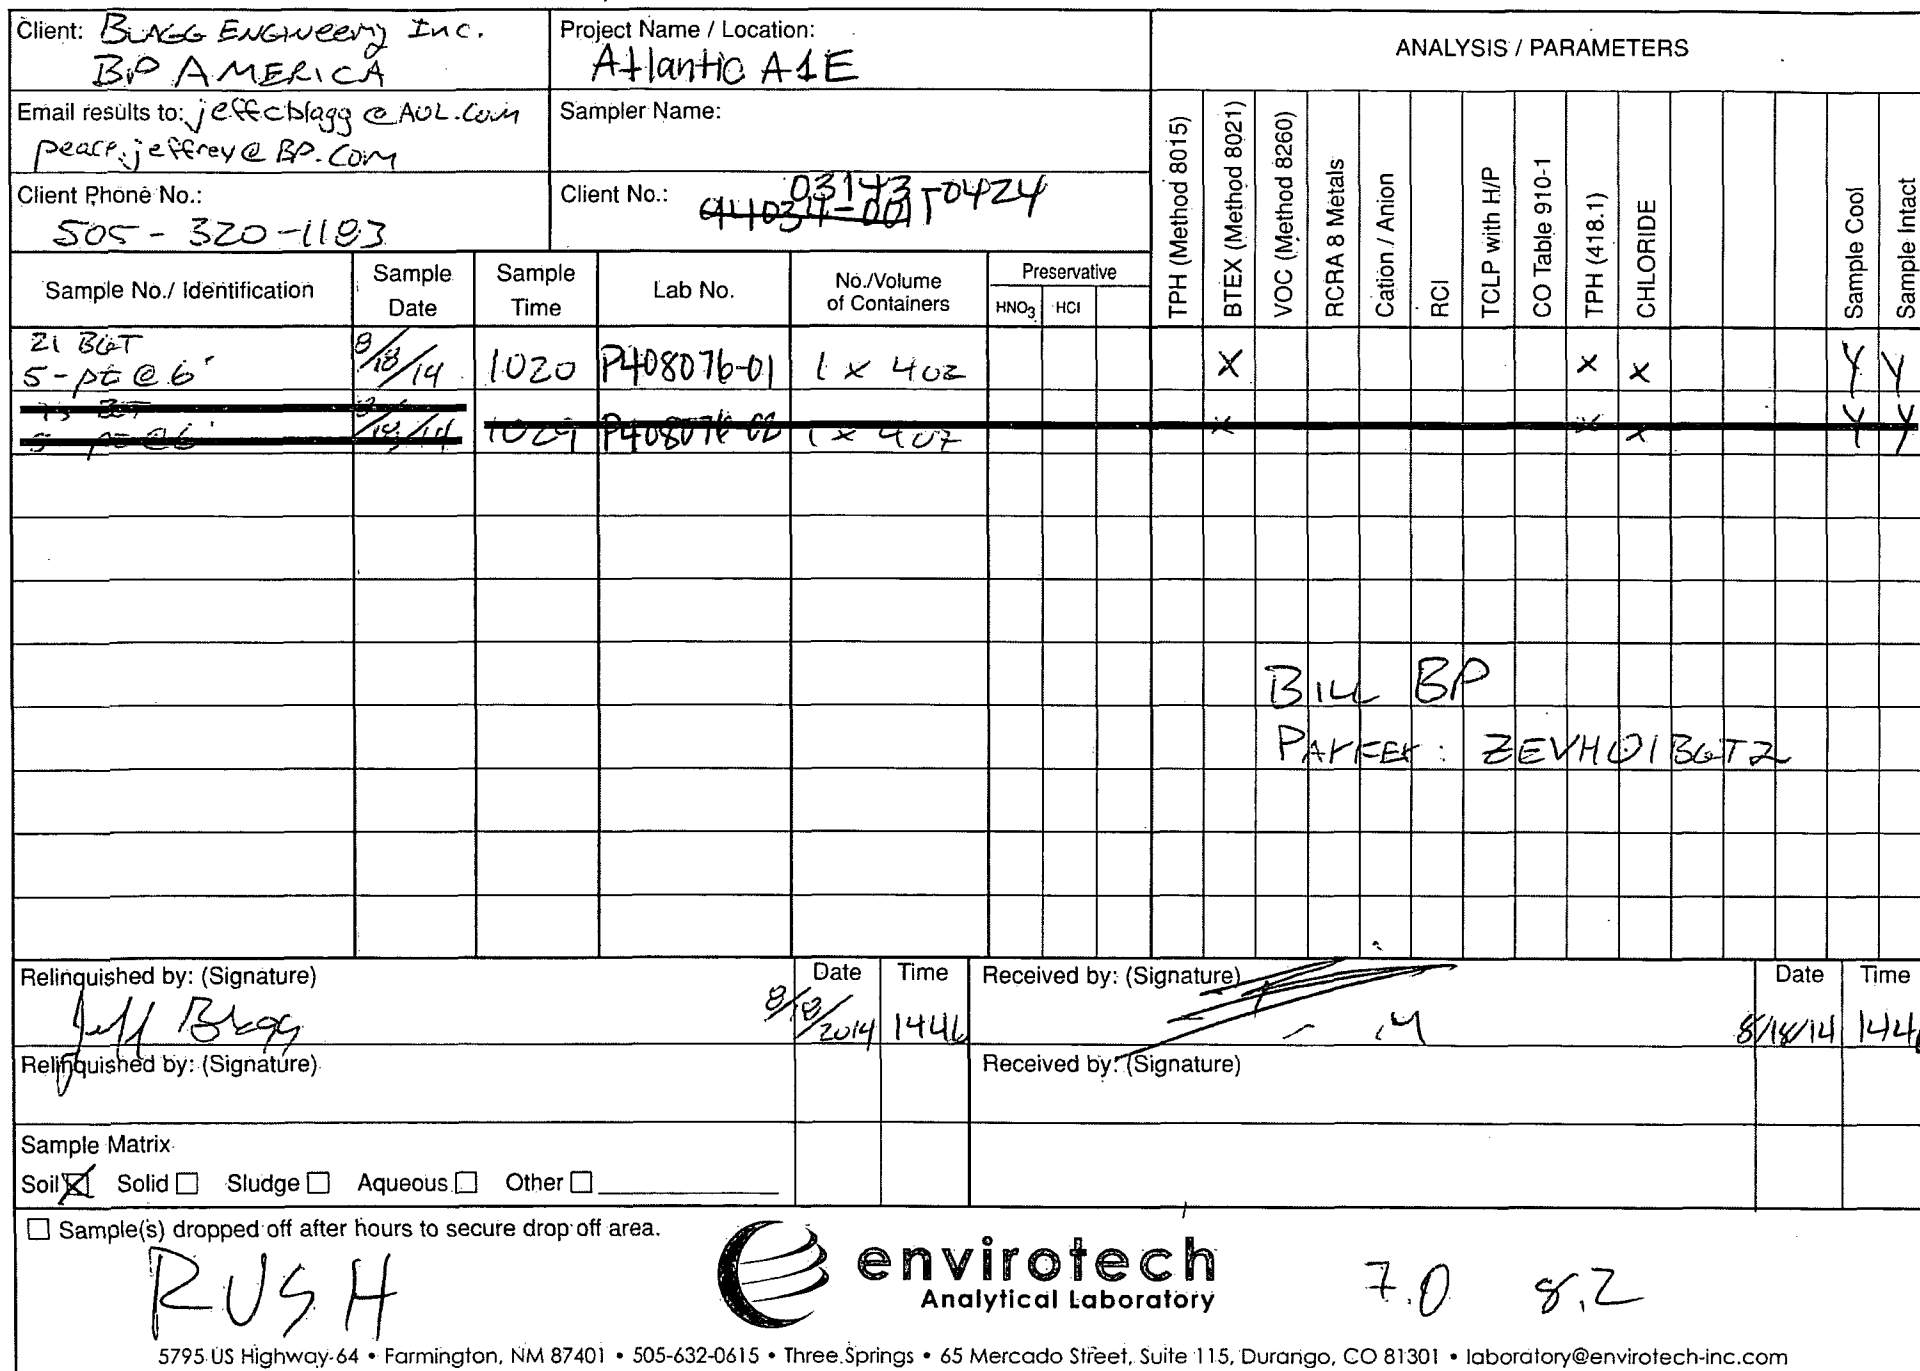 Client: BLAGG ENGINEERING Inc.
BP AMERICA
Project Name / Location:
Atlantic A1E
ANALYSIS / PARAMETERS
Email results to: jeffcblagg@AOL.com
peace.jeffrey@BP.com
Sampler Name:
Client Phone No.:
505-320-1183
Client No.:
03143-0424
Sample No./ Identification
Sample Date
Sample Time
Lab No.
No./Volume of Containers
Preservative
HNO3
HCl
TPH (Method 8015)
BTEX (Method 8021)
VOC (Method 8260)
RCRA 8 Metals
Cation / Anion
RCI
TCLP with H/P
CO Table 910-1
TPH (418.1)
CHLORIDE
Sample Cool
Sample Intact
21 BGT
5-pt @ 6' 8/18/14 1020 P408076-01 1 x 4oz X X X Y Y
5-pt @ 6' 8/18/14 1029 P408076-02 1 x 4oz X X X Y Y
BILL BP
PAYKEY: ZEVH01BGT2
Relinquished by: (Signature)
Jeff Blagg
Date
8/18/2014
Time
1446
Received by: (Signature)
Date
8/18/14
Time
1446
Relinquished by: (Signature)
Received by: (Signature)
Sample Matrix
Soil X Solid Sludge Aqueous Other
Sample(s) dropped off after hours to secure drop off area.
RUSH
envirotech
Analytical Laboratory
7.0 8.2
5795 US Highway 64 • Farmington, NM 87401 • 505-632-0615 • Three Springs • 65 Mercado Street, Suite 115, Durango, CO 81301 • laboratory@envirotech-inc.com